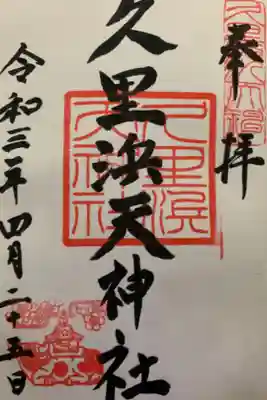 奉拝
久里浜天神社
令和三年四月二十五日
久里浜天神社